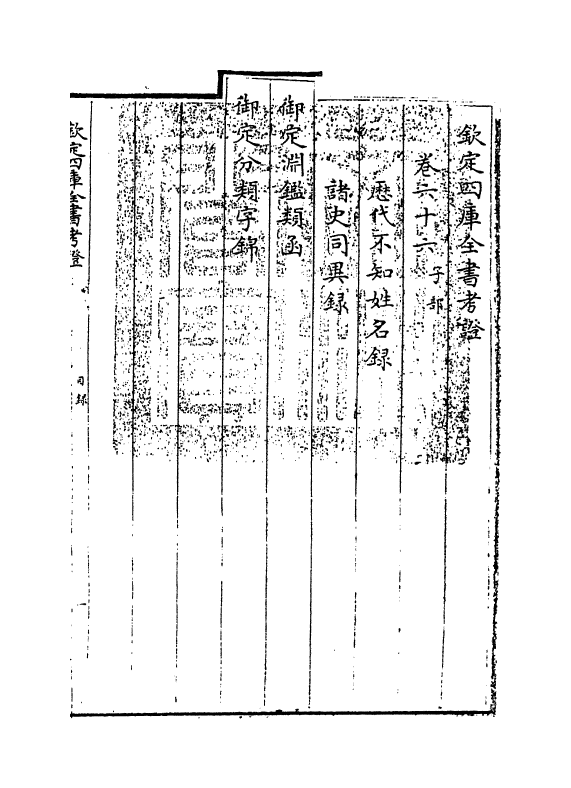 欽定四庫全書考證
卷六十六 子部
歷代不知姓名録
諸史同異録
御定淵鑑類函
御定分類字錦
欽定四庫全書考證
目録
一